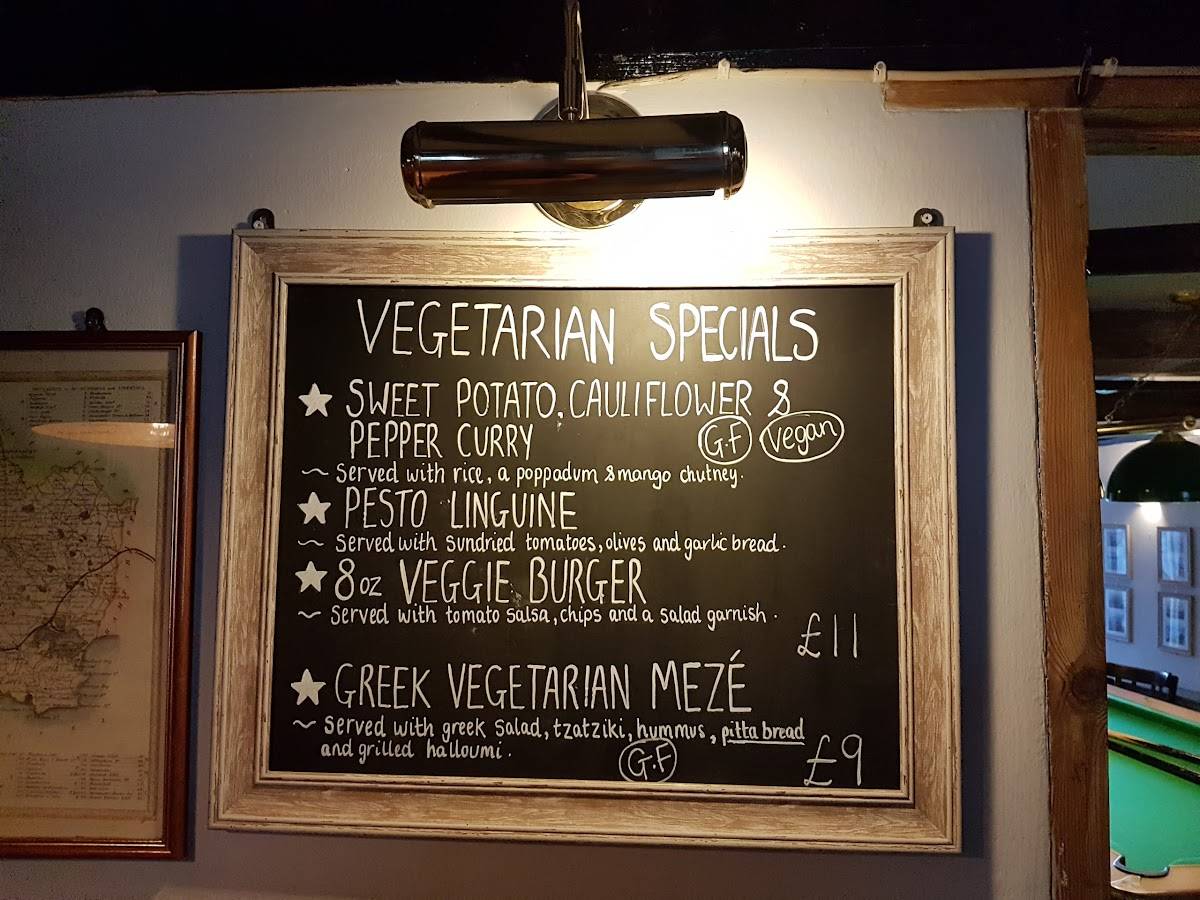 VEGETARIAN SPECIALS
★ SWEET POTATO, CAULIFLOWER &
PEPPER CURRY G.F vegan
~ Served with rice, a poppadum & mango chutney.
★ PESTO LINGUINE
~ Served with sundried tomatoes, olives and garlic bread.
★ 8oz VEGGIE BURGER
~ Served with tomato salsa, chips and a salad garnish.
£11
★ GREEK VEGETARIAN MEZÉ
~ Served with greek salad, tzatziki, hummus, pitta bread
and grilled halloumi. G.F £9